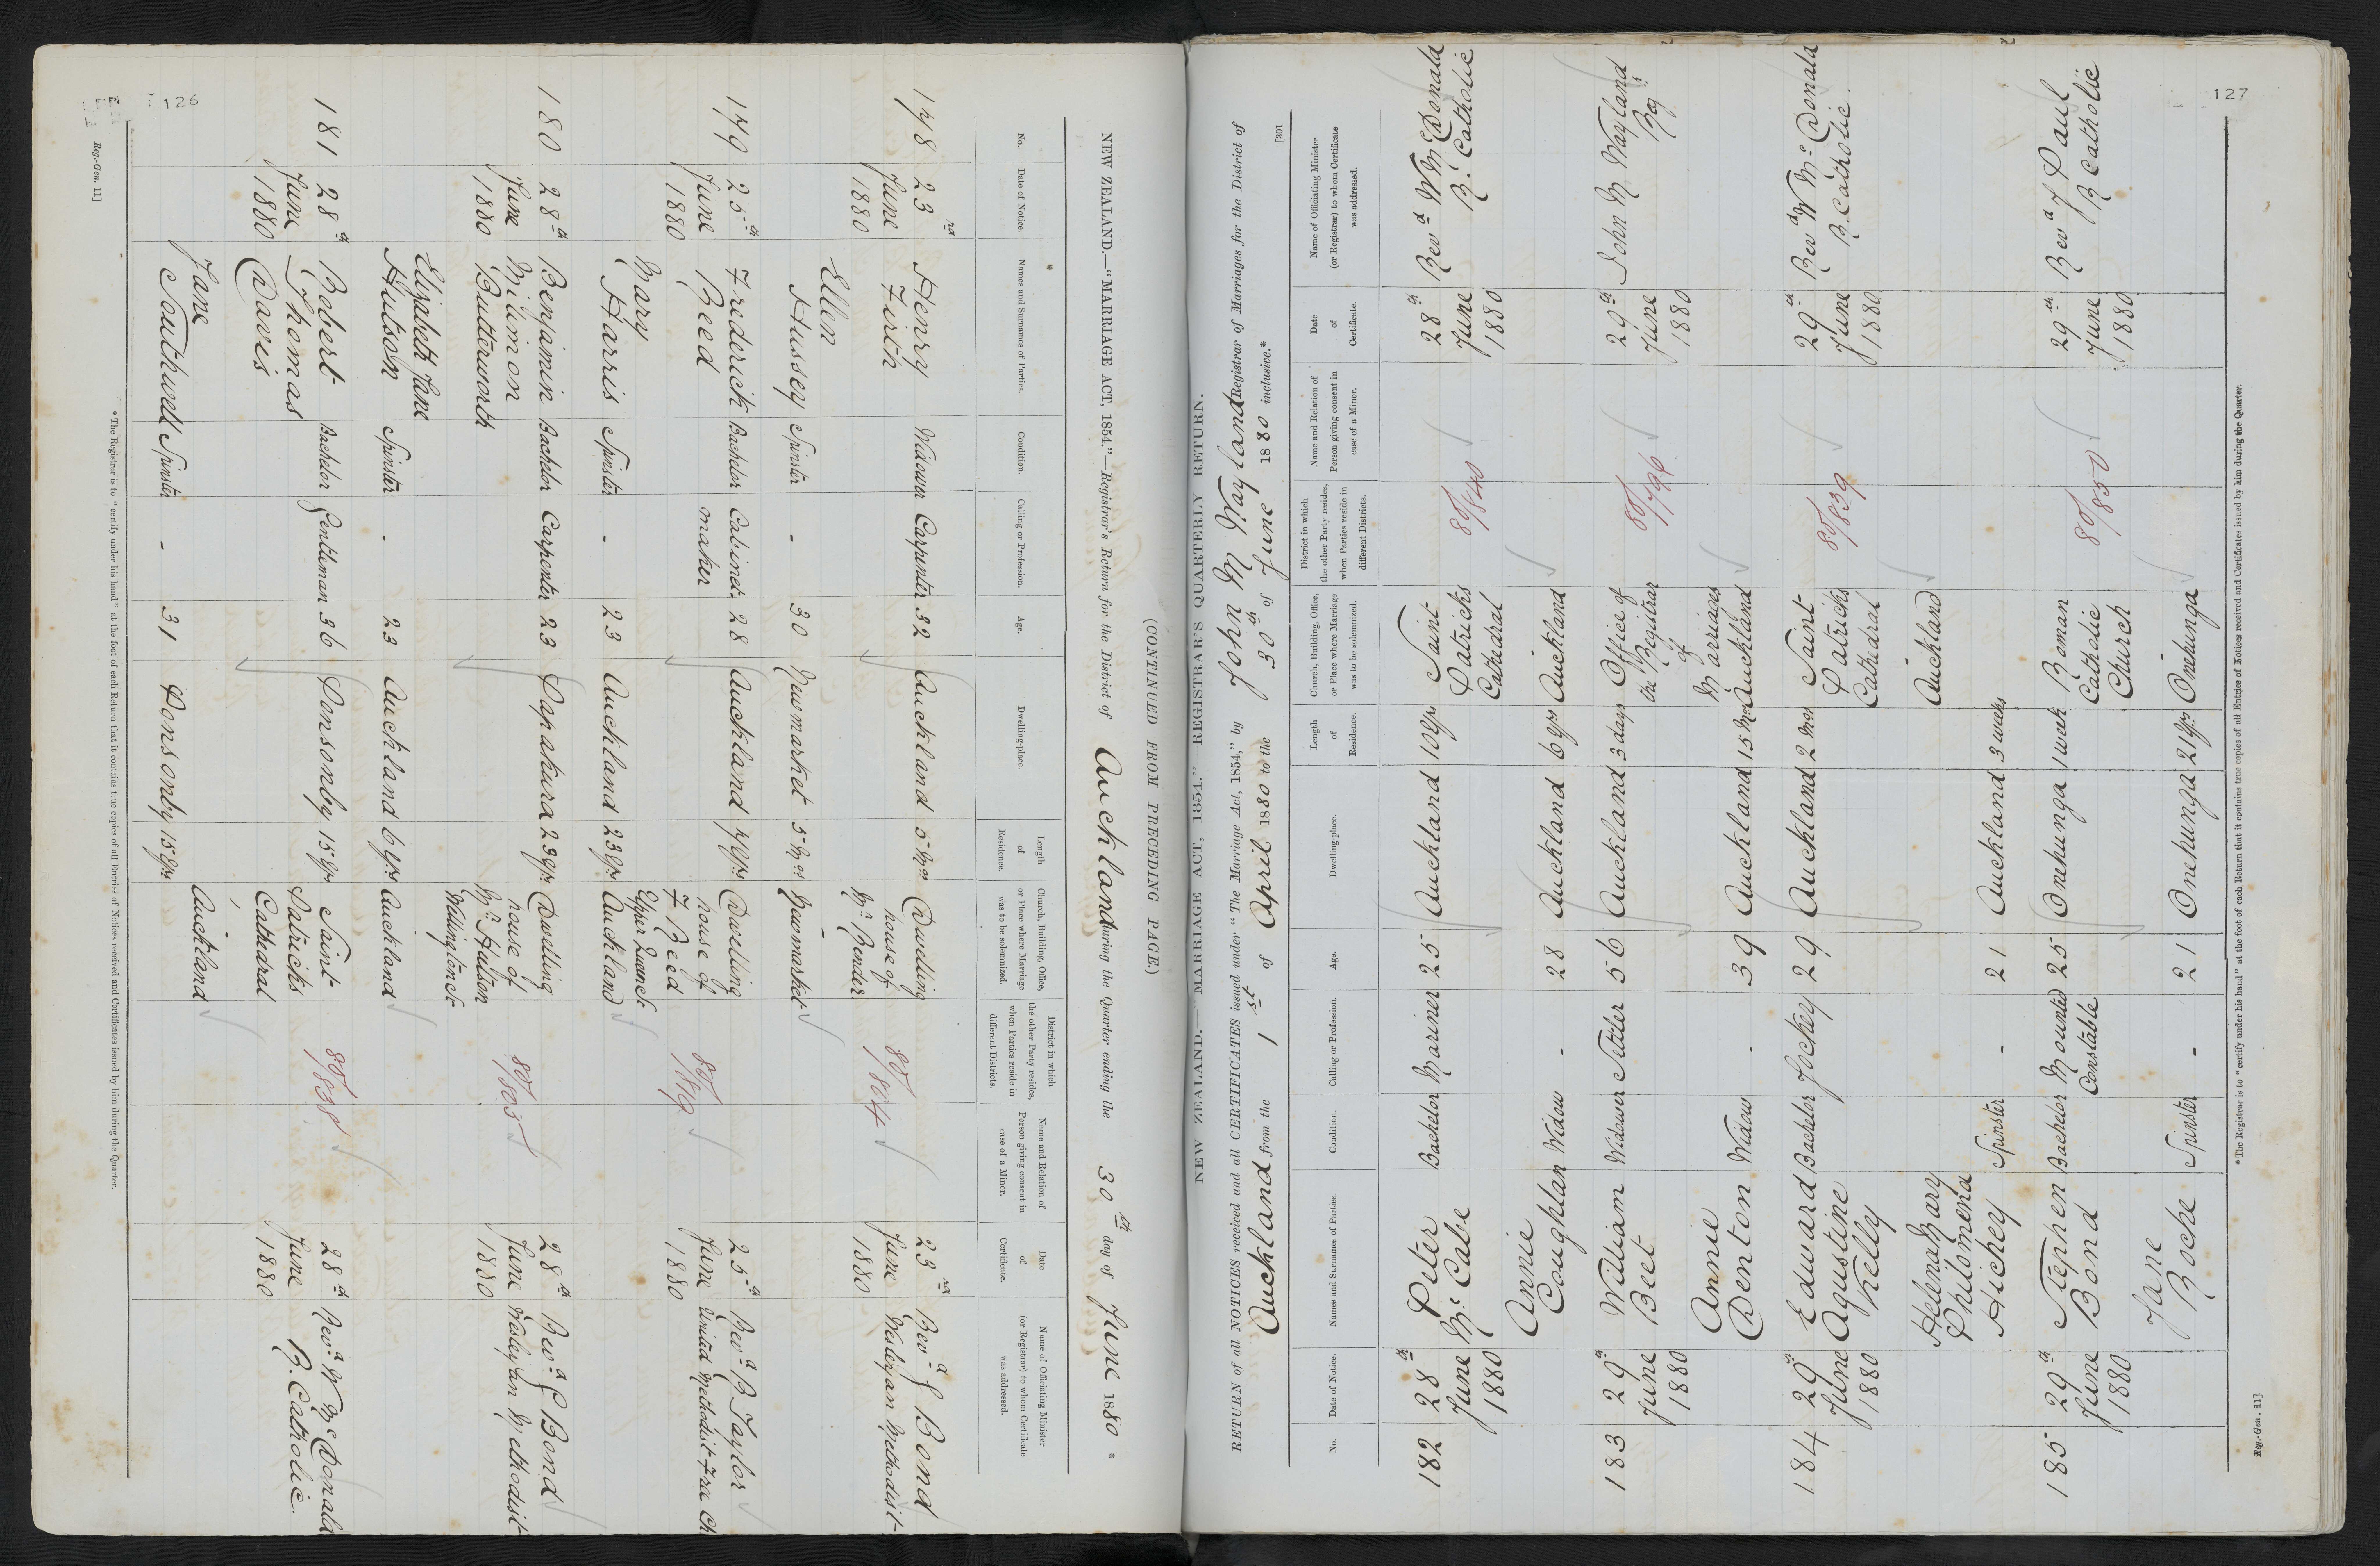 126
NEW ZEALAND.—"MARRIAGE ACT, 1854."—Registrar's Return for the District of Auckland during the Quarter ending the 30th day of June 1880 *
(CONTINUED FROM PRECEDING PAGE.)
No.
Date of Notice.
Names and Surnames of Parties.
Condition.
Calling or Profession.
Age.
Dwelling-place.
Length of Residence.
Church, Building, Office, or Place where Marriage was to be solemnized.
District in which the other Party resides, when Parties reside in different Districts.
Name and Relation of Person giving consent in case of a Minor.
Date of Certificate.
Name of Officiating Minister (or Registrar) to whom Certificate was addressed.
178 23rd June 1880 Henry Firth Widower Carpenter 32 Auckland 5 Mos Dwelling house of Mrs Bender 80/804 23rd June 1880 Revd J Bond Wesleyan Methodist
Ellen Hussey Spinster - 30 Newmarket 5 Mos Newmarket
179 25th June 1880 Frederick Beed Bachelor Cabinet maker 28 Auckland Dwelling house of F Beed Upper Queen St 25th June 1880 Revd B Taylor United Methodist Free Ch
Mary Harris Spinster - 23 Auckland 23 yrs Auckland
180 28th June 1880 Benjamin Milimon Butterworth Bachelor Carpenter 23 Papakura 23 yrs Dwelling house of Mrs Hutson Wellington St 80/803 28th June 1880 Revd J Bond Wesleyan Methodist
Elizabeth Jane Hutson Spinster - 23 Auckland 6 yrs Auckland
181 28th June 1880 Robert Thomas Davis Bachelor Gentleman 36 Ponsonby 15 yrs Saint Patricks Cathedral 80/838 28th June 1880 Revd W McDonald R. Catholic
Jane Southwell Spinster - 31 Ponsonby 15 yrs Auckland
*The Registrar is to "certify under his hand" at the foot of each Return that it contains true copies of all Entries of Notices received and Certificates issued by him during the Quarter.
Reg.-Gen. 11]
127
[301
NEW ZEALAND.—"MARRIAGE ACT, 1854."—REGISTRAR'S QUARTERLY RETURN.
RETURN of all NOTICES received and all CERTIFICATES issued under "The Marriage Act, 1854," by John M Wayland Registrar of Marriages for the District of
Auckland from the 1st of April 1880 to the 30th of June 1880 inclusive.*
No.
Date of Notice.
Names and Surnames of Parties.
Condition.
Calling or Profession.
Age.
Dwelling-place.
Length of Residence.
Church, Building, Office, or Place where Marriage was to be solemnized.
District in which the other Party resides, when Parties reside in different Districts.
Name and Relation of Person giving consent in case of a Minor.
Date of Certificate.
Name of Officiating Minister (or Registrar) to whom Certificate was addressed.
182 28th June 1880 Peter McCabe Bachelor Mariner 25 Auckland Saint Patricks Cathedral 80/840 28th June 1880 Revd W McDonald R. Catholic
Annie Coughlan Widow - 28 Auckland 6 yrs Auckland
183 29th June 1880 William Beet Widower Settler 56 Auckland 3 days Office of the Registrar of Marriages 80/796 29th June 1880 John M Wayland Regr
Annie Denton Widow - 39 Auckland 15 Mos Auckland
184 29th June 1880 Edward Agustine Kelly Bachelor Jockey 29 Auckland 2 Mos Saint Patricks Cathedral 80/839 29th June 1880 Revd W McDonald R. Catholic
Helenah Mary Philomena Hickey Spinster - 21 Auckland 3 weeks Auckland
185 29th June 1880 Stephen Bond Bachelor Mounted Constable 25 Onehunga 1 week Roman Catholic Church 80/850 29th June 1880 Revd J Paul R Catholic
Jane Roche Spinster - 21 Onehunga 21 yrs Onehunga
*The Registrar is to "certify under his hand" at the foot of each Return that it contains true copies of all Entries of Notices received and Certificates issued by him during the Quarter.
Reg.-Gen. 11]